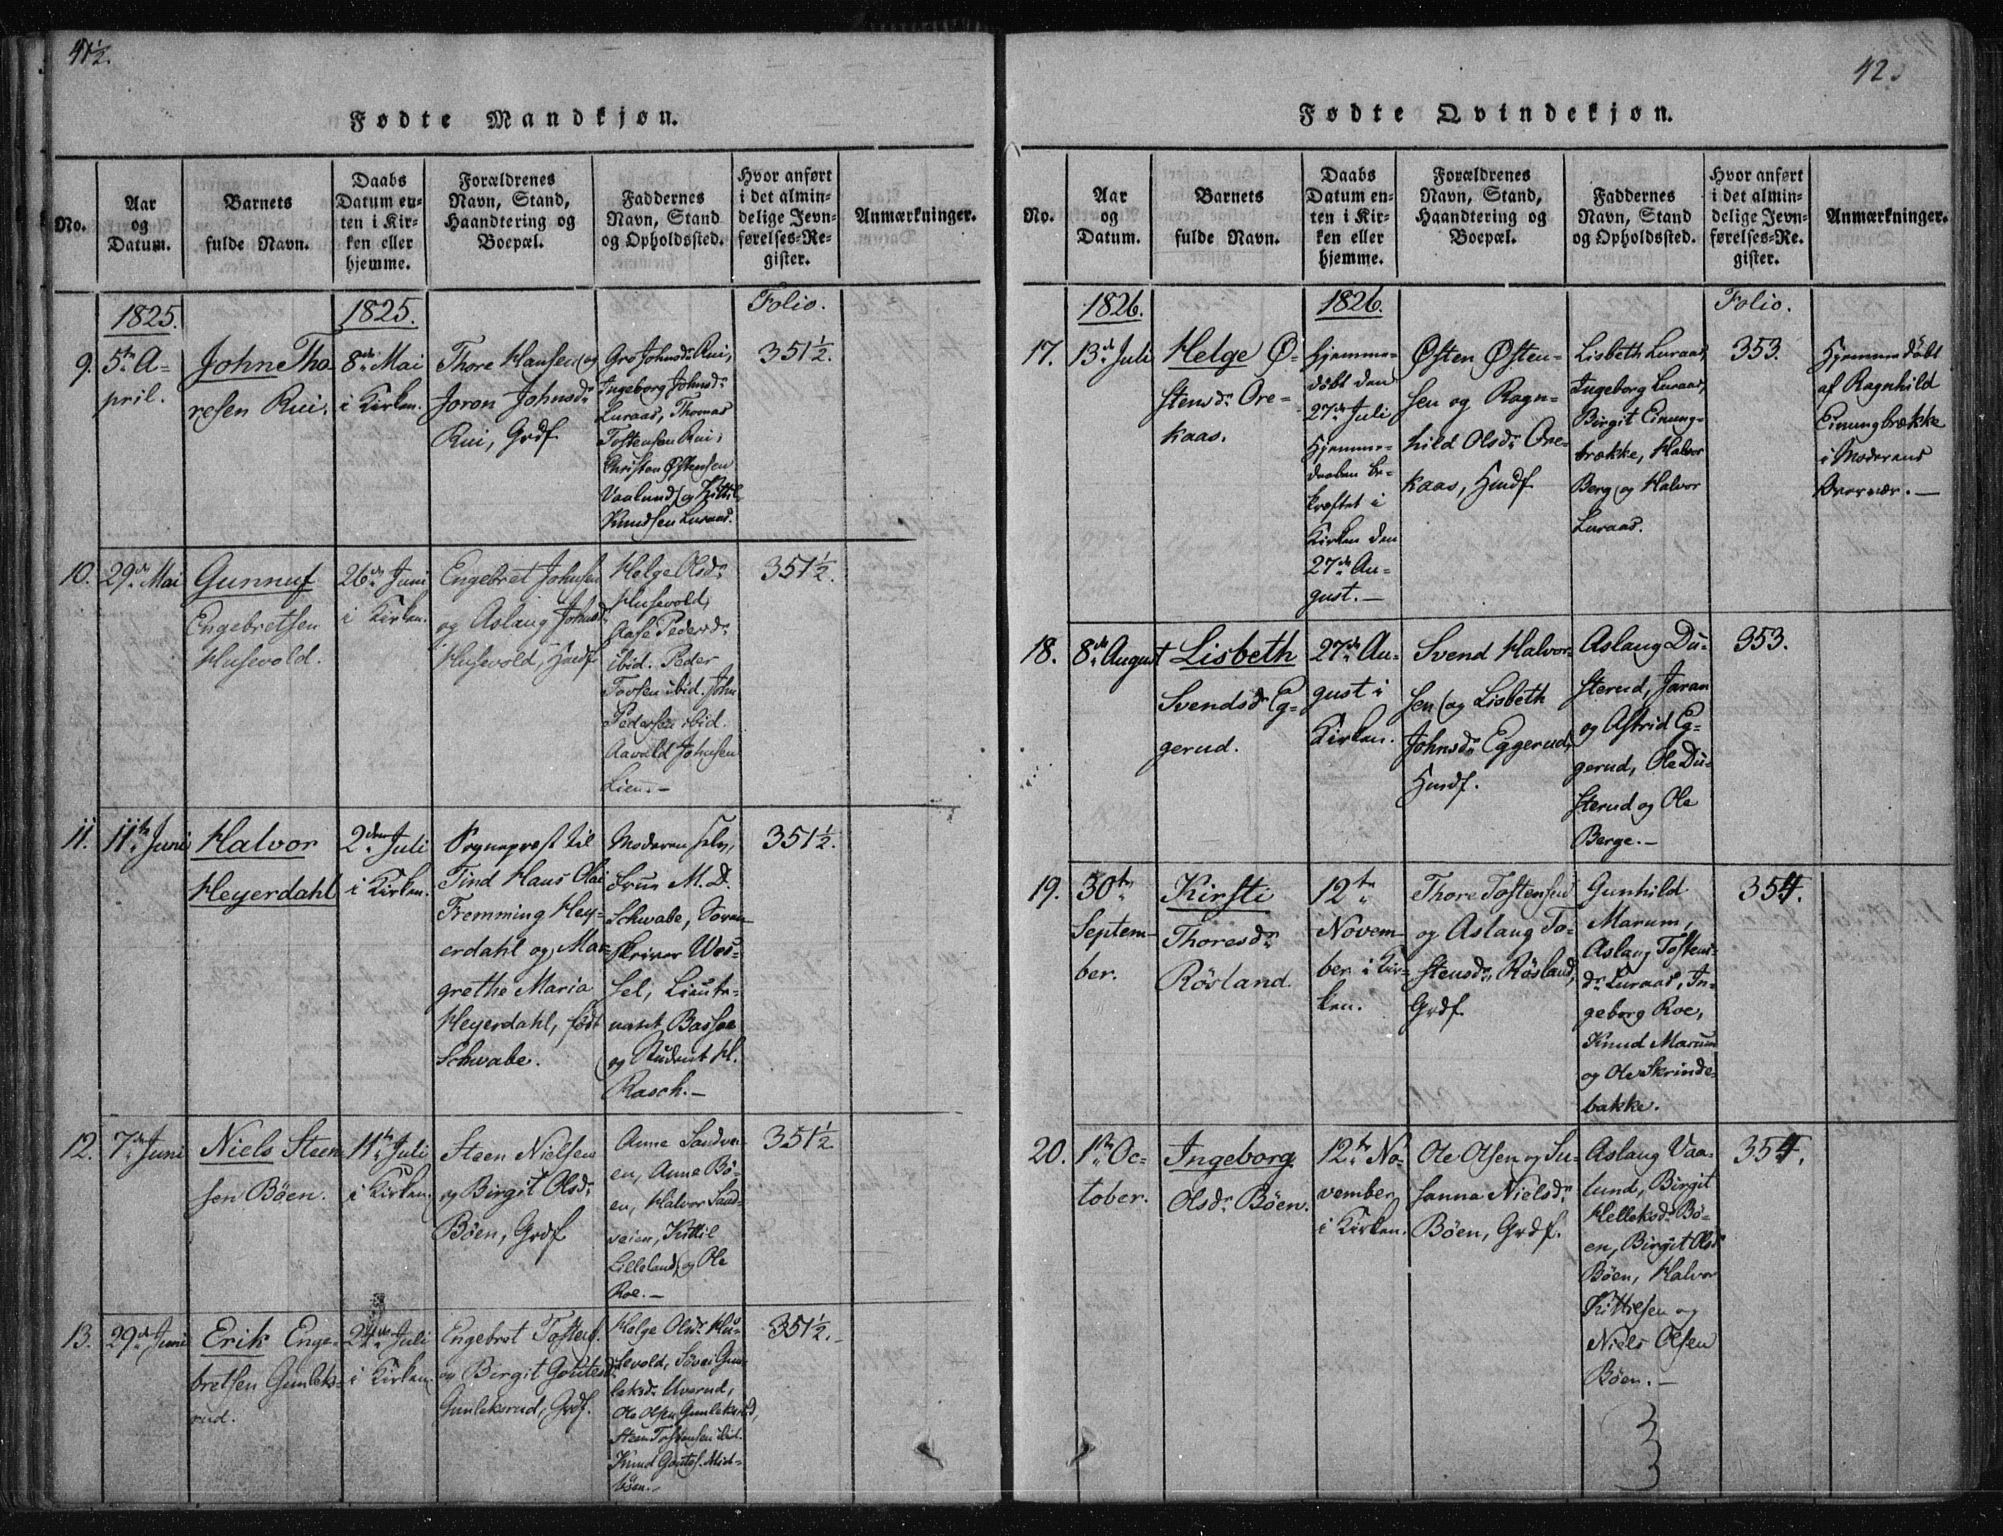 41½.
Fødte Mandkjøn.
No.
Aar
og
Datum.
Barnets
fulde Navn.
Daabs
Datum en-
ten i Kir-
ken eller
hjemme.
Forældrenes
Navn, Stand,
Haandtering og
Boepæl.
Faddernes
Navn, Stand
og Opholdssted.
Hvor anført
i det almin-
delige Jevn-
førelses-Re-
gister.
Anmærkninger.
1825.
1825.
Folio.
9.
5te A-
pril.
John Tho-
resen Rui.
8de Mai
i Kirken.
Thore Hansen og
Joron Johnsdr
Rui, Grdf
Gro Johnsdr Rui,
Ingeborg Johnsdr
Luraas, Thomas
Tostensen Rui,
Christen Østensen
Vaalund og Kittil
Knudsen Luraas.
351½.
10.
29de Mai
Gunnuf
Engebretsen
Husevold.
26de Juni
i Kirken.
Engebret Johnsen
og Aslaug Johnsdr
Husevold, Husdf
Helge Olsdr
Husevold,
Aase Pedersdr
ibid. Peder
Tovsen ibid. John
Pedersen ibid.
Aavald Johnsen
Lien.-
351½.
11.
11te Juni
Halvor
Heyerdahl
2den Juli
i Kirken.
Sognepræst til
Tind Hans Olai
Fremming Hey-
erdahl og Mar-
grethe Maria
Heyerdahl, født
Schwabe.
Moderen selv,
Frue M. D.
Schwabe, Soren-
skriver Wes-
sel, Lieute-
nant Bassøe
og Student H.
Rasch.-
351½.
12.
7de Juni
Niels Steen-
sen Bøen.
11te Juli
i Kirken.
Steen Nielsen
og Birgit Olsdr
Bøen, Grdf
Anne Sandvei-
en, Anne Bø-
en, Halvor Sand-
veien, Kittil
Lilleland, og Ole
Roe.-
351½
13.
29de Juni
Erik Enge-
bretsen Gunleks-
rud.
24de Juli
i Kirken.
Engebret Tostens.
og Birgit Goutesdr
Gunleksrud, Grdf.
Helge Olsdr Hu-
sevold, Søvei Gun-
leksdr Uverud,
Ole Olsen Gunleksrud,
Steen Tostensen ibid.
Knud Goutes. Mid-
bøen.-
351½.
42.
Fødte Qvindekjøn.
No.
Aar
og
Datum.
Barnets
fulde Navn.
Daabs
Datum en-
ten i Kir-
ken eller
hjemme.
Forældrenes
Navn, Stand,
Haandtering og
Boepæl.
Faddernes
Navn, Stand
og Opholdssted.
Hvor anført
i det almin-
delige Jevn-
førelses-Re-
gister.
Anmærkninger.
1826.
1826.
Folio.
17.
13de Juli
Helge Ø-
stensdr Ore-
kaas.
Hjemme-
døbt den
27de Juli
Hjemme-
daaben be-
kræftet i
Kirken den
27de Au-
gust.-
Østen Østen-
sen og Ragn-
hild Olsdr Ore-
kaas, Husdf
Lisbeth Luraas,
Ingeborg Luraas,
Birgit Einung-
brække, Halvor
Berg og Halvor
Luraas.
353.
Hjemmedøbt
af Ragnhild
Einungbrække
i Moderens
Overvær.-
18.
8de August
Lisbeth
Svendsdr Eg-
gerud.
27de Au-
gust i
Kirken.
Svend Halvor-
sen og Lisbeth
Johnsdr Eggerud,
Husdf.
Aslaug Du-
sterud, Joran
og Astrid Eg-
gerud, Ole Du-
sterud og Ole
Berge.-
353.
19.
30te
Septem-
ber.
Kirsti
Thoresdr
Røsland.
12te
Novem-
ber i Kir-
ken.
Thore Tostensen
og Aslaug To-
stensdr Røsland,
Grdf
Gunhild
Marum,
Aslaug Tostens-
dr Luraas, In-
geborg Roe,
Knud Marum
og Ole Skrinde-
bakke.
354.
20.
1ste Oc-
tober.
Ingeborg
Olsdr Bøen.
12te No-
vember
i Kirken.
Ole Olsen og Su-
sanna Nielsdr
Bøen, Grdf.
Aslaug Vaa-
lund, Birgit
Helleksdr Bø-
en, Birgit Olsdr
Bøen, Halvor
Kittilsen og
Niels Olsen
Bøen.-
354.